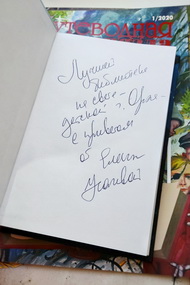 1/2020
Лучшей
библиотеке
на свете -
детской г. Орла -
с приветом
от Елены
Усачевой